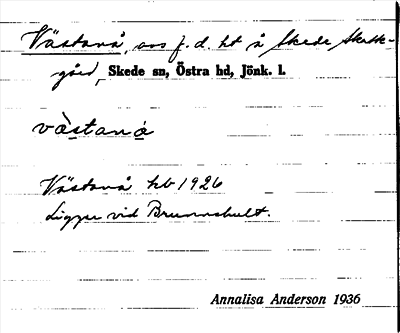 Västanå, avs f. d. ht å Skede Skatte-
gård, Skede sn, Östra hd, Jönk. l.
västanå
Västanå hb 1926
Ligger vid Brunnshult.
Annalisa Anderson 1936